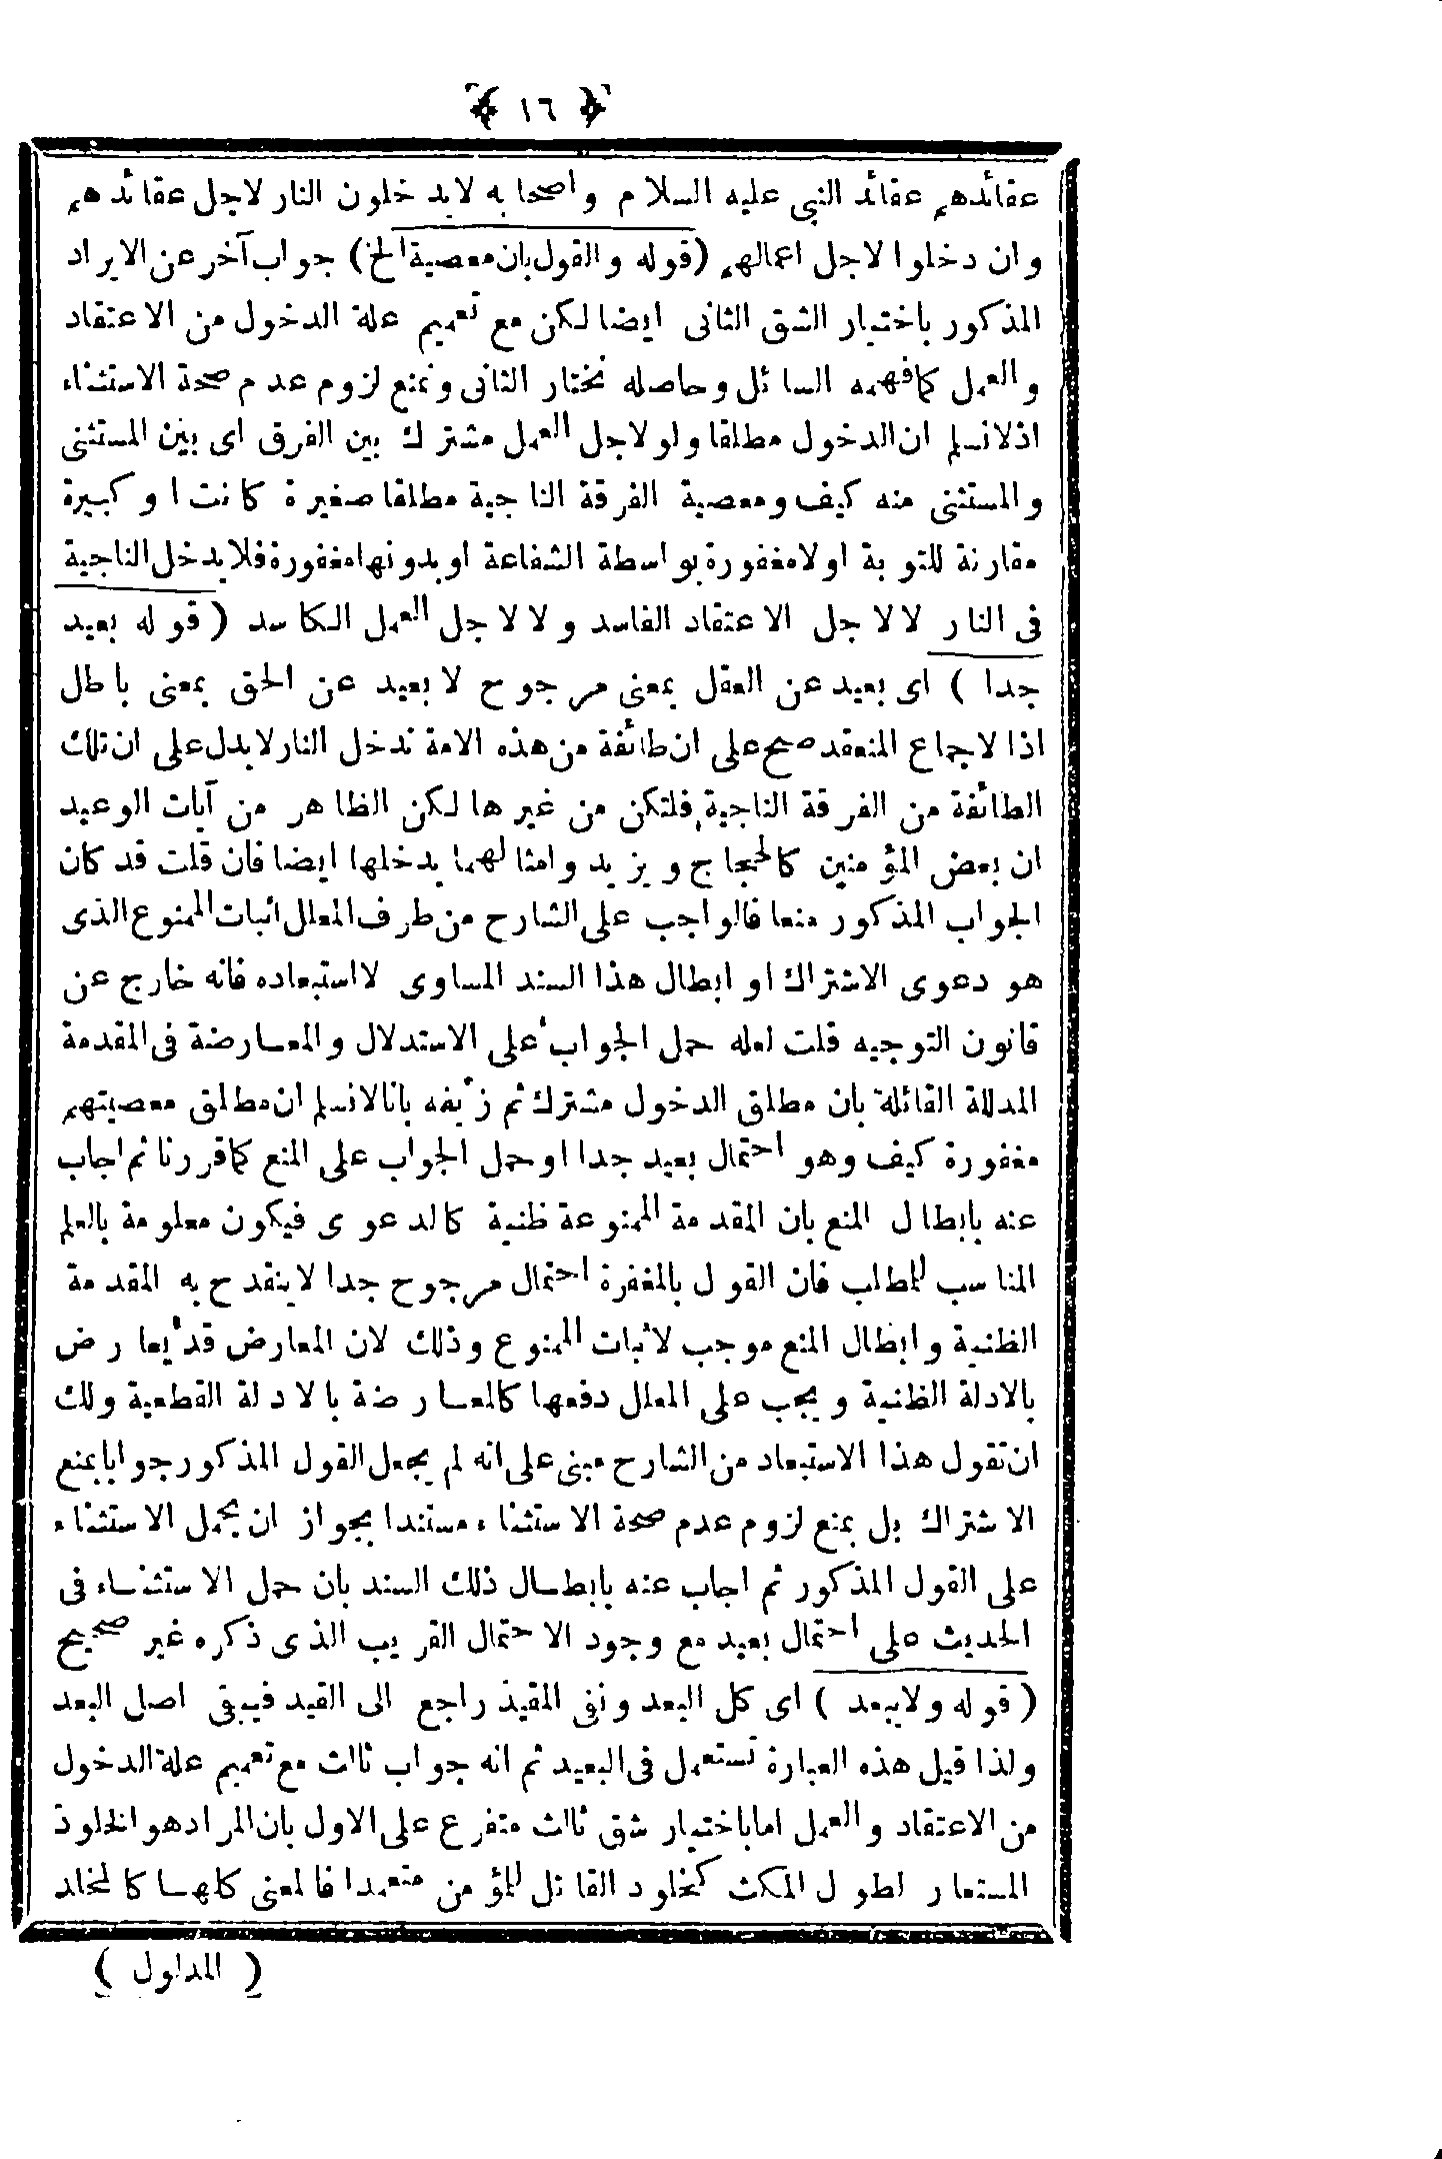 ﴿ ١٦ ﴾
عقائدهم عقائد النبى عليه السلام واصحابه لايدخلون النار لاجل عقائدهم
وان دخلوا لاجل اعمالهم (قوله والقول بان معصية الخ) جواب آخر عن الايراد
المذكور باختيار الشق الثانى ايضا لكن مع تعميم علة الدخول من الاعتقاد
والعمل كمافهمه السائل وحاصله نختار الثانى ونمنع لزوم عدم صحة الاستثناء
اذلانسلم ان الدخول مطلقا ولو لاجل العمل مشترك بين الفرق اى بين المستثنى
والمستثنى منه كيف ومعصية الفرقة الناجية مطلقا صغيرة كانت او كبيرة
مقارنة للتوبة اولا مغفورة بواسطة الشفاعة او بدونها مغفورة فلا يدخل الناجية
فى النار لا لاجل الاعتقاد الفاسد ولا لاجل العمل الكاسد (قوله بعيد
جدا ) اى بعيد عن العقل بمعنى مرجوح لا بعيد عن الحق بمعنى باطل
اذا لاجماع المنعقد صح على ان طائفة من هذه الامة تدخل النار لا يدل على ان تلك
الطائفة من الفرقة الناجية فلتكن من غيرها لكن الظاهر من آيات الوعيد
ان بعض المؤمنين كالحجاج ويزيد وامثالهما يدخلها ايضا فان قلت قد كان
الجواب المذكور منعا فالواجب على الشارح من طرف المعلل اثبات الممنوع الذى
هو دعوى الاشتراك او ابطال هذا السند المساوى لا استبعاده فانه خارج عن
قانون التوجيه قلت لعله حمل الجواب على الاستدلال والمعارضة فى المقدمة
المدللة القائلة بان مطلق الدخول مشترك ثم زيفه بانا لانسلم ان مطلق معصيتهم
مغفورة كيف وهو احتمال بعيد جدا اوحمل الجواب على المنع كماقررنا ثم اجاب
عنه بابطال المنع بان المقدمة الممنوعة ظنية كالدعوى فيكون معلومة بالعلم
المناسب للمطلب فان القول بالمغفرة احتمال مرجوح جدا لا ينقدح به المقدمة
الظنية وابطال المنع موجب لاثبات الممنوع وذلك لان المعارض قد يعارض
بالادلة الظنية ويجب على المعلل دفعها كالمعارضة بالادلة القطعية ولك
ان تقول هذا الاستبعاد من الشارح مبنى على انه لم يجعل القول المذكور جوابا بمنع
الاشتراك بل بمنع لزوم عدم صحة الاستثناء مستندا بجواز ان يحمل الاستثناء
على القول المذكور ثم اجاب عنه بابطال ذلك السند بان حمل الاستثناء فى
الحديث على احتمال بعيد مع وجود الاحتمال القريب الذى ذكره غير صحيح
(قوله ولايبعد ) اى كل البعد ونفى المقيد راجع الى القيد فيبقى اصل البعد
ولذا قيل هذه العبارة تستعمل فى البعيد ثم انه جواب ثالث مع تعميم علة الدخول
من الاعتقاد والعمل اما باختيار شق ثالث متفرع على الاول بان المراد هو الخلود
المستعار لطول المكث كخلود القاتل للمؤمن متعمدا فالمعنى كلها كالمخلد
( المدلول )